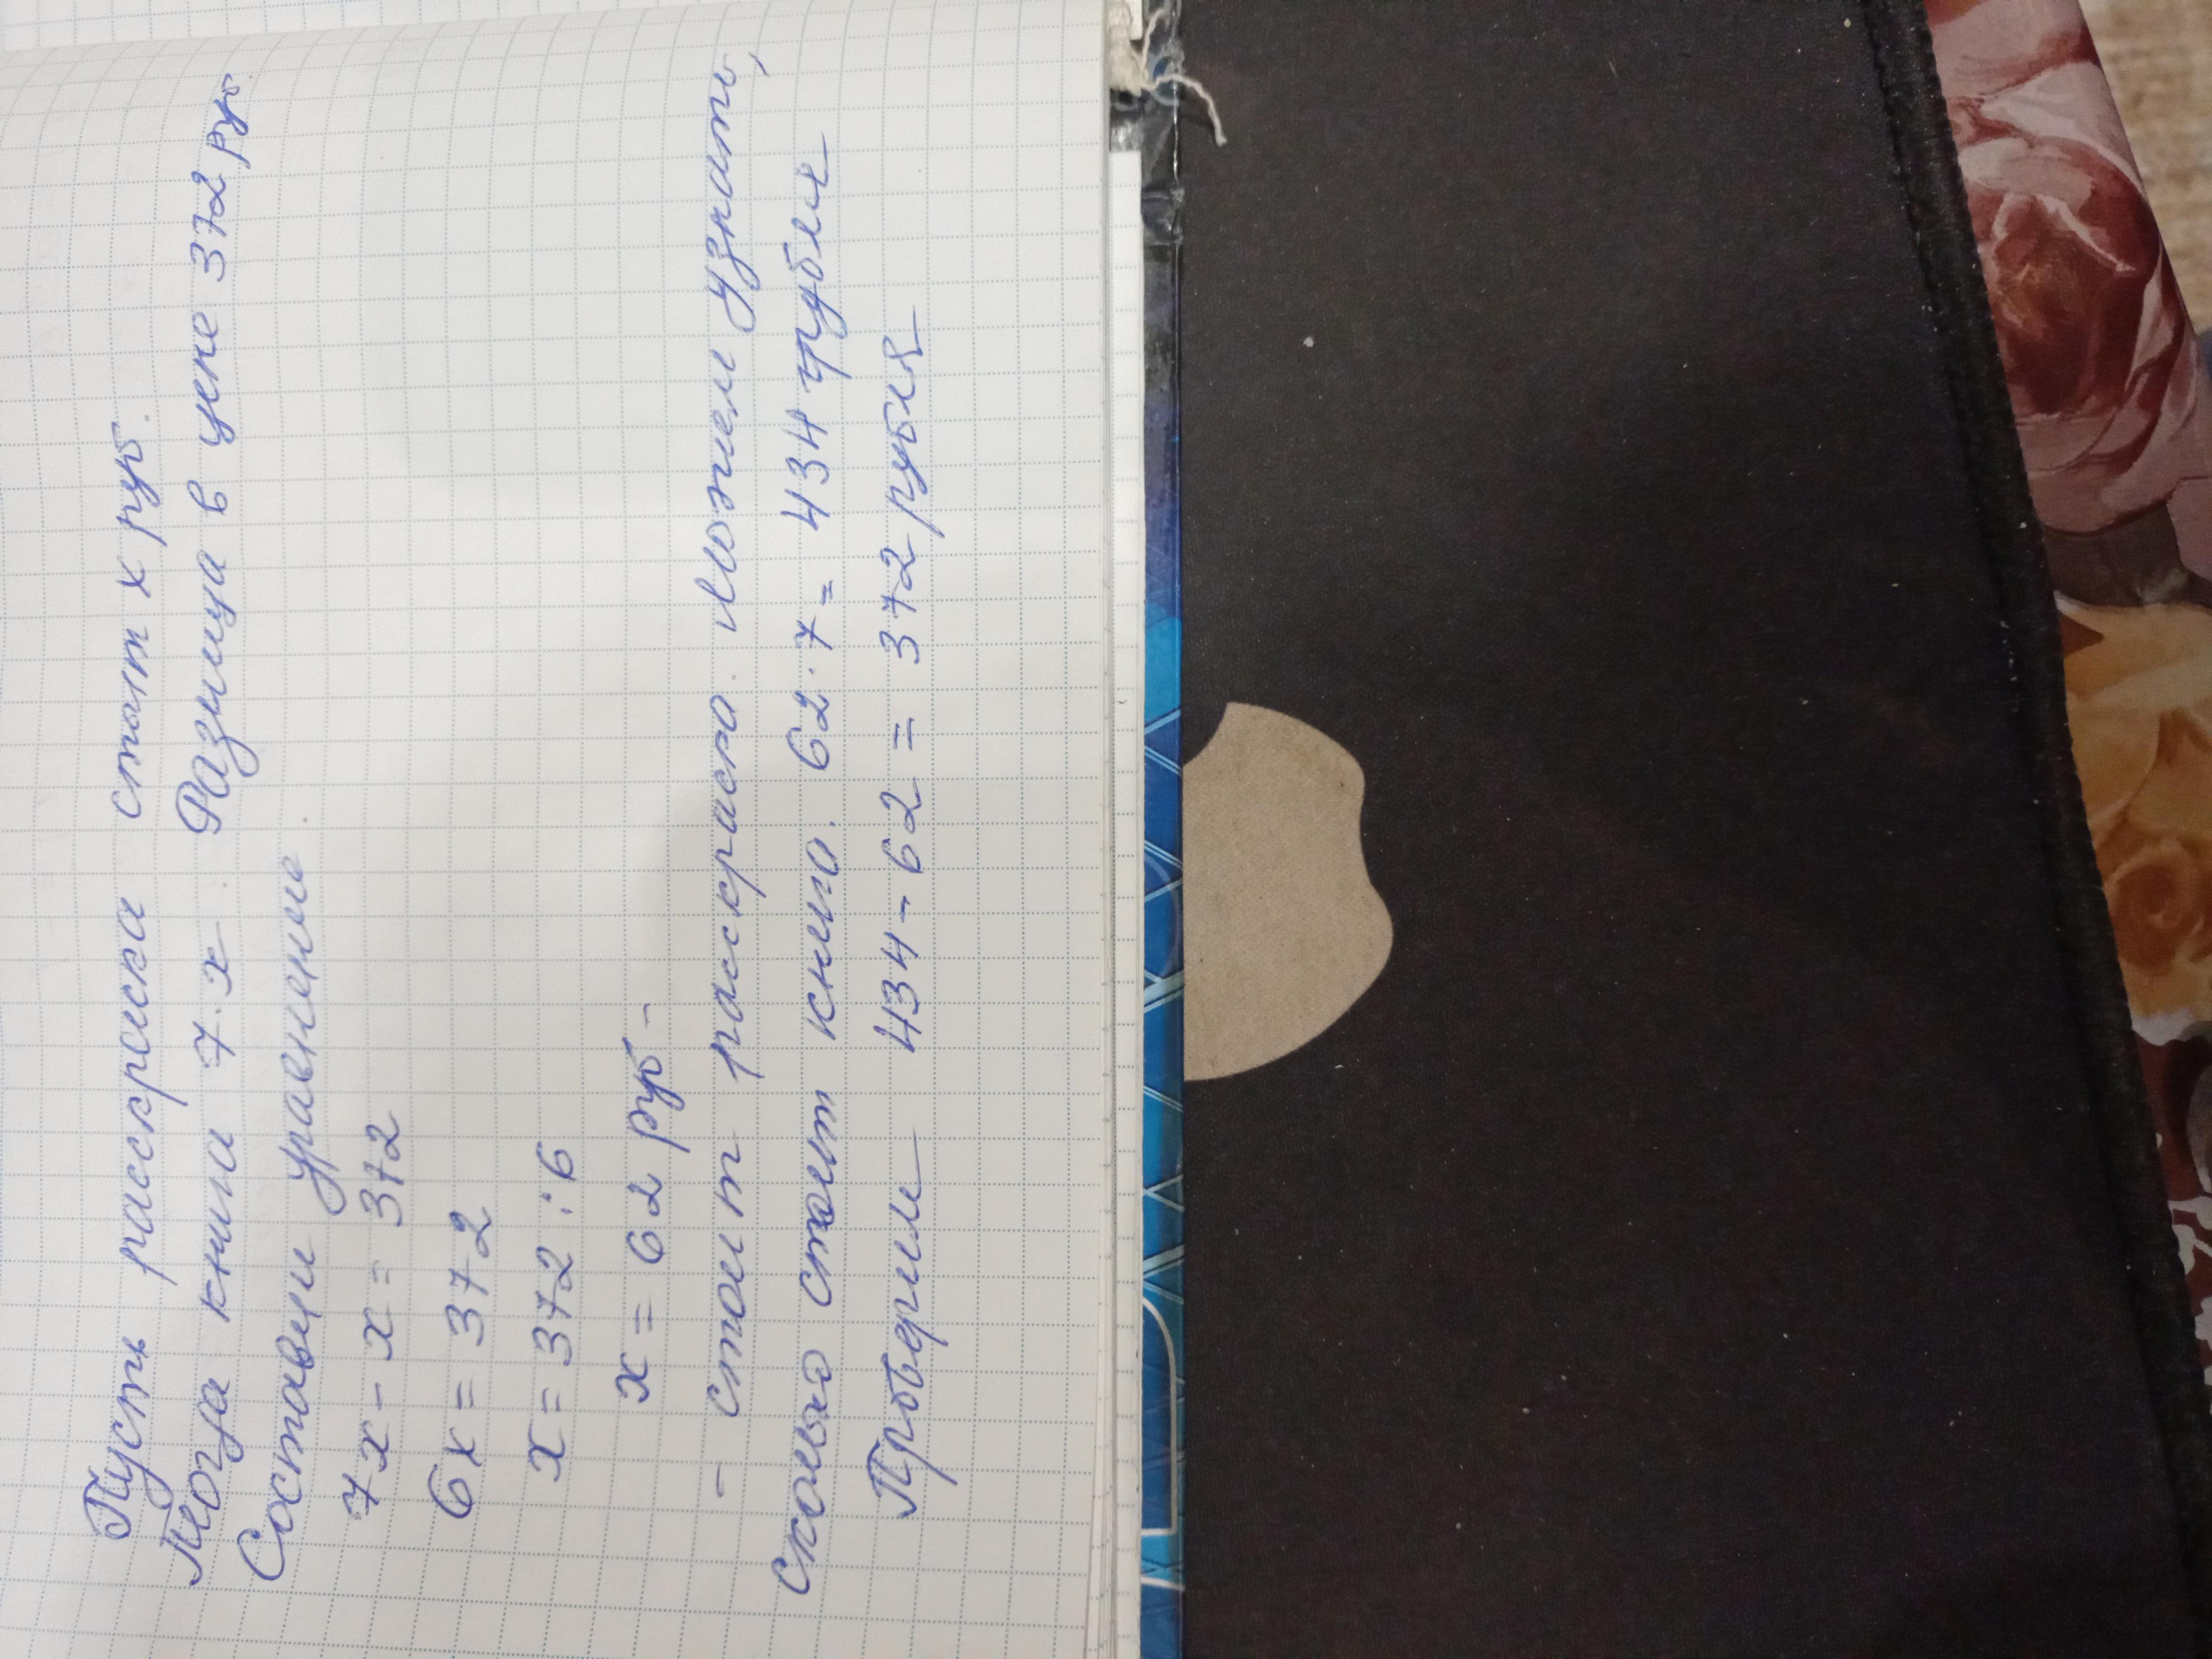 Пусть расскраска стоит х руб.
Тогда книга 7·х. Разница в цене 372 руб.
Составим уравнение.
7х - х = 372
6х = 372
х = 372 : 6
х = 62 руб -
- стоит расскраска. Можем узнать,
сколько стоит книга. 62·7 = 434 рубля
Проверим 434 - 62 = 372 рубля